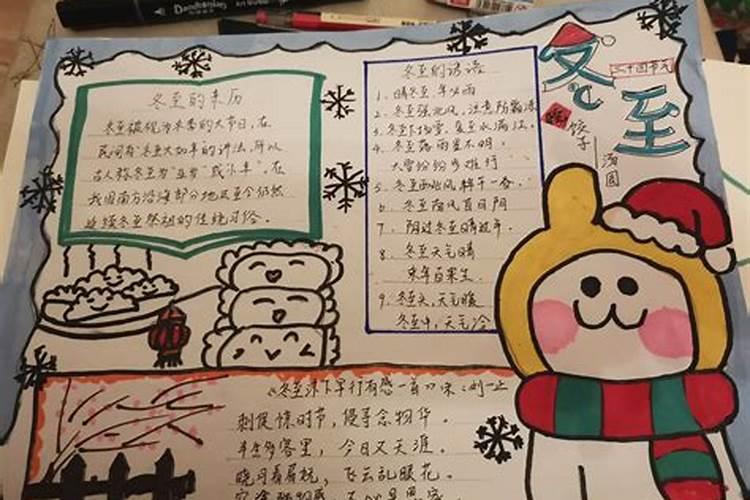 冬至
二十四节气
饺子
汤圆
冬至的来历
冬至被视为冬季的大节日,在
民间有"冬至大如年"的讲法,所以
古人称冬至为"亚岁"或"小年"。在
我国南方沿海部分地区至今仍然
延续冬至祭祖的传统习俗。
冬至的谚语
1、晴冬至,年必雨
2、冬至强北风,注意防霜冻
3、冬至下场雪,夏至水满江。
4、冬至落雨星不明,
大雪纷纷步难行
5、冬至西北风,
6、冬至南风百日阴
7、阴过冬至晴过年。
8、冬至天气晴
来年百果生。
9、冬至头,天气暖
冬至中,天气冷
《冬至
早行有感一首》宋:刘一止
刺促惊时节,侵寻念物华。
半生多客里,今日又天涯。
晓月看看
,飞云乱眼花。